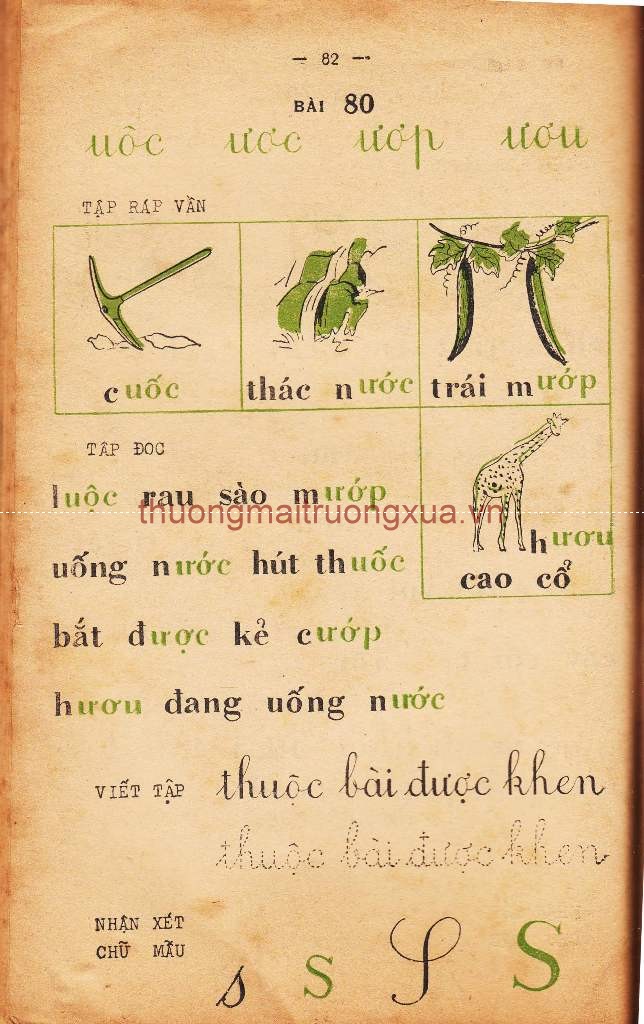 — 82 —
BÀI 80
uôc ươc ươp ươu
TẬP RÁP VẦN
cuốc
thác nước
trái mướp
TẬP ĐỌC
luộc rau sào mướp
thuongmaitruongxua.vn
hươu
cao cổ
uống nước hút thuốc
bắt được kẻ cướp
hươu đang uống nước
VIẾT TẬP
thuộc bài được khen
thuộc bài được khen
NHẬN XÉT
CHỮ MẪU
s S S S